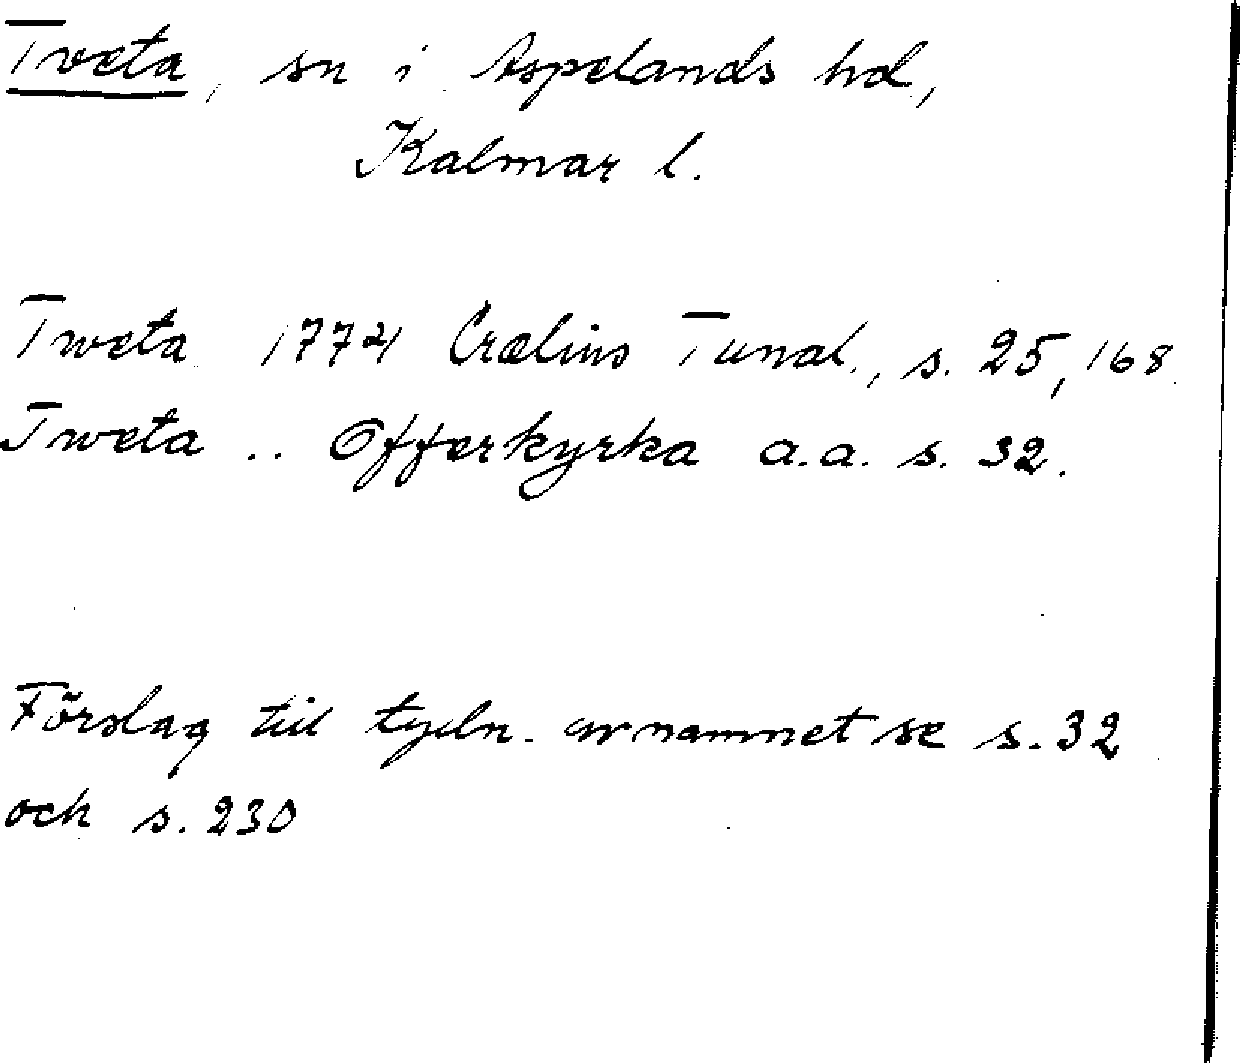 Tveta, sn i Aspelands hd,
Kalmar l.
Tweta 1774 Crælius Tunal., s. 25, 168
Tweta .. Offerkyrka a.a. s. 32.
Förslag till tydn. av namnet se s. 32
och s. 230